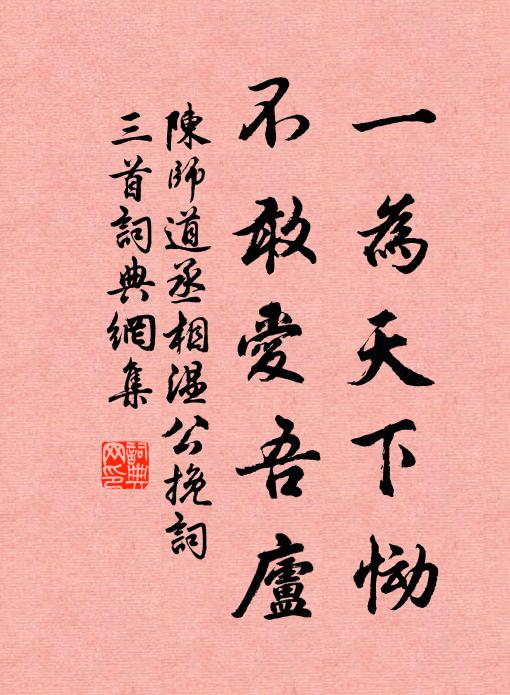 一為天下恸
不敢愛吾廬
陳師道丞相温公挽詞
三首詞典網集
詞典
网印